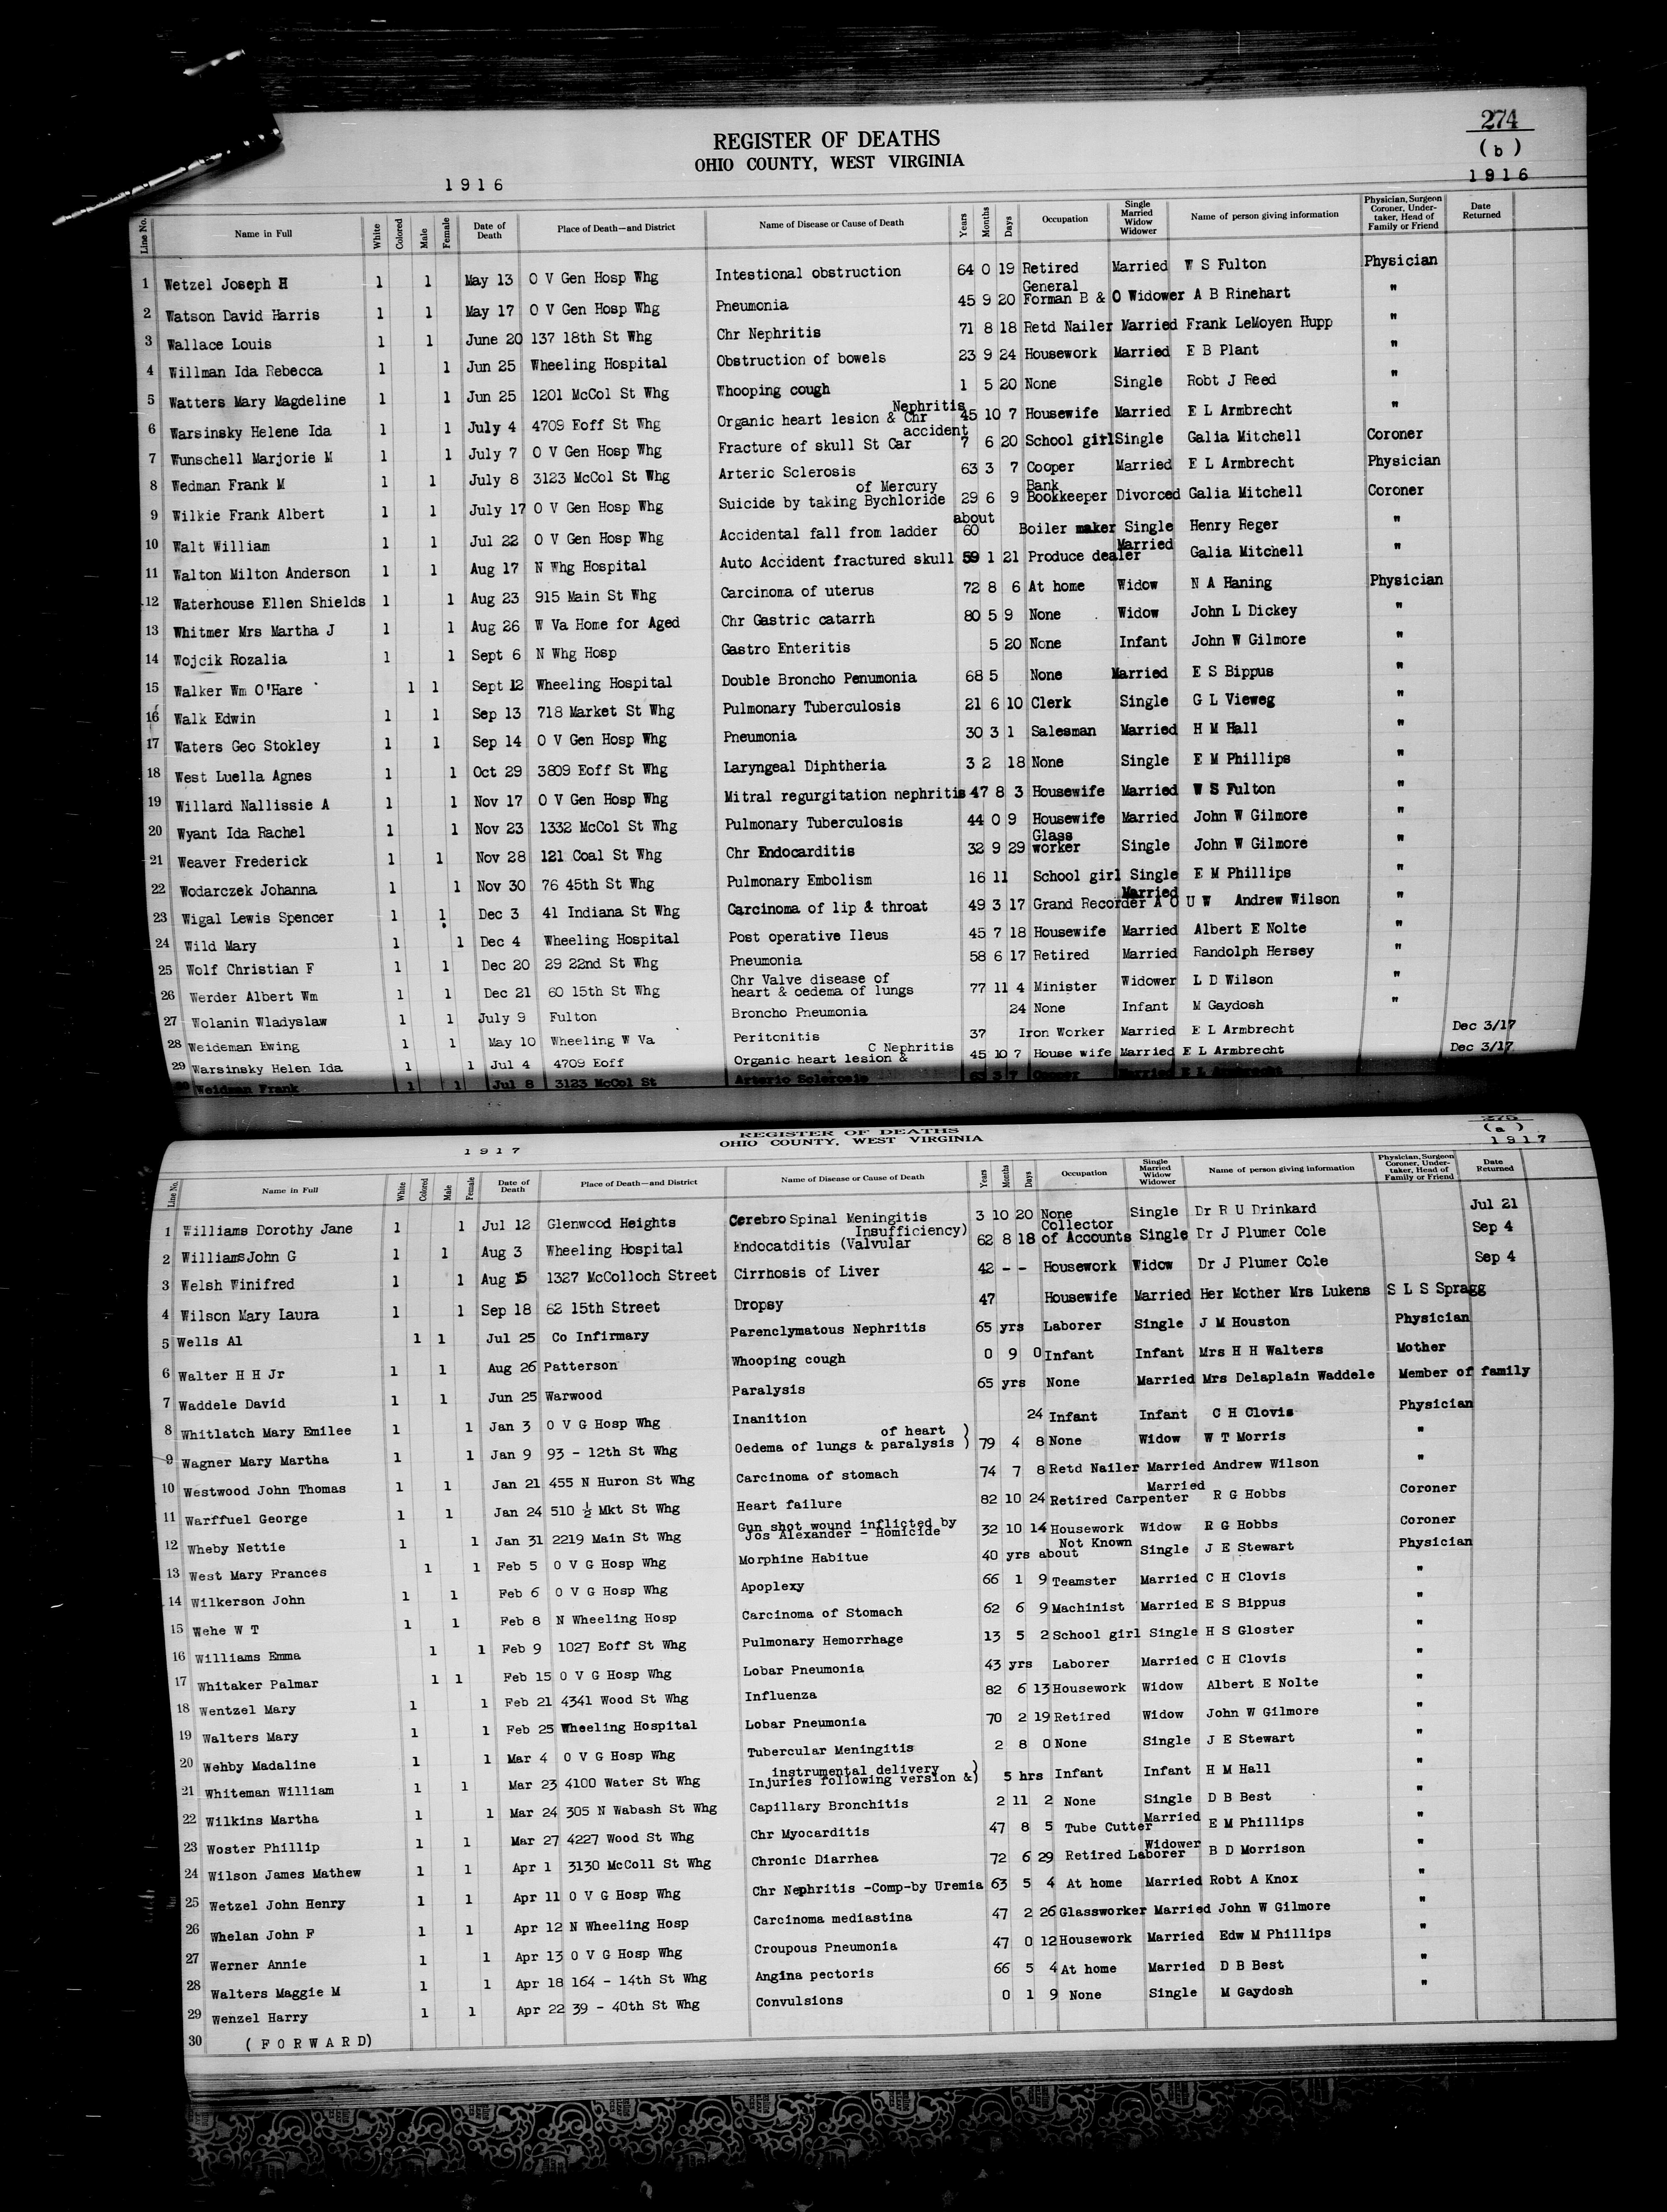 274
REGISTER OF DEATHS
( b )
OHIO COUNTY, WEST VIRGINIA
1916 1916
Line No. Name in Full White Colored Male Female Date of Death Place of Death—and District Name of Disease or Cause of Death Years Months Days Occupation Single Married Widow Widower Name of person giving information Physician, Surgeon Coroner, Undertaker, Head of Family or Friend Date Returned
1 Wetzel Joseph H 1 1 May 13 O V Gen Hosp Whg Intestional obstruction 64 0 19 Retired Married W S Fulton Physician
2 Watson David Harris 1 1 May 17 O V Gen Hosp Whg Pneumonia 45 9 20 General Forman B & O Widower A B Rinehart "
3 Wallace Louis 1 1 June 20 137 18th St Whg Chr Nephritis 71 8 18 Retd Nailer Married Frank LeMoyen Hupp "
4 Willman Ida Rebecca 1 1 Jun 25 Wheeling Hospital Obstruction of bowels 23 9 24 Housework Married E B Plant "
5 Watters Mary Magdeline 1 1 Jun 25 1201 McCol St Whg Whooping cough 1 5 20 None Single Robt J Reed "
6 Warsinsky Helene Ida 1 1 July 4 4709 Eoff St Whg Organic heart lesion & Chr Nephritis 45 10 7 Housewife Married E L Armbrecht "
7 Wunschell Marjorie M 1 1 July 7 O V Gen Hosp Whg Fracture of skull St Car accident 7 6 20 School girl Single Galia Mitchell Coroner
8 Wedman Frank M 1 1 July 8 3123 McCol St Whg Arteric Sclerosis 63 3 7 Cooper Married E L Armbrecht Physician
9 Wilkie Frank Albert 1 1 July 17 O V Gen Hosp Whg Suicide by taking Bychloride of Mercury 29 6 9 Bank Bookkeeper Divorced Galia Mitchell Coroner
10 Walt William 1 1 Jul 22 O V Gen Hosp Whg Accidental fall from ladder about 60 Boiler maker Single Henry Reger "
11 Walton Milton Anderson 1 1 Aug 17 N Whg Hospital Auto Accident fractured skull 59 1 21 Produce dealer Married Galia Mitchell "
12 Waterhouse Ellen Shields 1 1 Aug 23 915 Main St Whg Carcinoma of uterus 72 8 6 At home Widow N A Haning Physician
13 Whitmer Mrs Martha J 1 1 Aug 26 W Va Home for Aged Chr Gastric catarrh 80 5 9 None Widow John L Dickey "
14 Wojcik Rozalia 1 1 Sept 6 N Whg Hosp Gastro Enteritis 5 20 None Infant John W Gilmore "
15 Walker Wm O'Hare 1 1 Sept 12 Wheeling Hospital Double Broncho Penumonia 68 5 None Married E S Bippus "
16 Walk Edwin 1 1 Sep 13 718 Market St Whg Pulmonary Tuberculosis 21 6 10 Clerk Single G L Vieweg "
17 Waters Geo Stokley 1 1 Sep 14 O V Gen Hosp Whg Pneumonia 30 3 1 Salesman Married H M Hall "
18 West Luella Agnes 1 1 Oct 29 3809 Eoff St Whg Laryngeal Diphtheria 3 2 18 None Single E M Phillips "
19 Willard Nallissie A 1 1 Nov 17 O V Gen Hosp Whg Mitral regurgitation nephritis 47 8 3 Housewife Married W S Fulton "
20 Wyant Ida Rachel 1 1 Nov 23 1332 McCol St Whg Pulmonary Tuberculosis 44 0 9 Housewife Married John W Gilmore "
21 Weaver Frederick 1 1 Nov 28 121 Coal St Whg Chr Endocarditis 32 9 29 Glass worker Single John W Gilmore "
22 Wodarczek Johanna 1 1 Nov 30 76 45th St Whg Pulmonary Embolism 16 11 School girl Single E M Phillips "
23 Wigal Lewis Spencer 1 1 Dec 3 41 Indiana St Whg Carcinoma of lip & throat 49 3 17 Grand Recorder A O U W Married Andrew Wilson "
24 Wild Mary 1 1 Dec 4 Wheeling Hospital Post operative Ileus 45 7 18 Housewife Married Albert E Nolte "
25 Wolf Christian F 1 1 Dec 20 29 22nd St Whg Pneumonia 58 6 17 Retired Married Randolph Hersey "
26 Werder Albert Wm 1 1 Dec 21 60 15th St Whg Chr Valve disease of heart & oedema of lungs 77 11 4 Minister Widower L D Wilson "
27 Wolanin Wladyslaw 1 1 July 9 Fulton Broncho Pneumonia 24 None Infant M Gaydosh "
28 Weideman Ewing 1 1 May 10 Wheeling W Va Peritonitis 37 Iron Worker Married E L Armbrecht Dec 3/17
29 Warsinsky Helen Ida 1 1 Jul 4 4709 Eoff Organic heart lesion & C Nephritis 45 10 7 House wife Married E L Armbrecht Dec 3/17
30 Weidman Frank 1 1 Jul 8 3123 McCol St Arteric Sclerosis 63 3 7 Cooper Married E L Armbrecht
275
REGISTER OF DEATHS
( a )
OHIO COUNTY, WEST VIRGINIA
1917 1917
Line No. Name in Full White Colored Male Female Date of Death Place of Death—and District Name of Disease or Cause of Death Years Months Days Occupation Single Married Widow Widower Name of person giving information Physician, Surgeon Coroner, Undertaker, Head of Family or Friend Date Returned
1 Williams Dorothy Jane 1 1 Jul 12 Glenwood Heights Cerebro Spinal Meningitis 3 10 20 None Single Dr R U Drinkard Jul 21
2 WilliamsJohn G 1 1 Aug 3 Wheeling Hospital Endocatditis (Valvular Insufficiency) 62 8 18 Collector of Accounts Single Dr J Plumer Cole Sep 4
3 Welsh Winifred 1 1 Aug 15 1327 McColloch Street Cirrhosis of Liver 42 - - Housework Widow Dr J Plumer Cole Sep 4
4 Wilson Mary Laura 1 1 Sep 18 62 15th Street Dropsy 47 Housewife Married Her Mother Mrs Lukens S L S Spragg
5 Wells Al 1 1 Jul 25 Co Infirmary Parenclymatous Nephritis 65 yrs Laborer Single J M Houston Physician
6 Walter H H Jr 1 1 Aug 26 Patterson Whooping cough 0 9 0 Infant Infant Mrs H H Walters Mother
7 Waddele David 1 1 Jun 25 Warwood Paralysis 65 yrs None Married Mrs Delaplain Waddele Member of family
8 Whitlatch Mary Emilee 1 1 Jan 3 O V G Hosp Whg Inanition 24 Infant Infant C H Clovis Physician
9 Wagner Mary Martha 1 1 Jan 9 93 - 12th St Whg Oedema of lungs & paralysis of heart ) 79 4 8 None Widow W T Morris "
10 Westwood John Thomas 1 1 Jan 21 455 N Huron St Whg Carcinoma of stomach 74 7 8 Retd Nailer Married Andrew Wilson "
11 Warffuel George 1 1 Jan 24 510 ½ Mkt St Whg Heart failure 82 10 24 Retired Carpenter Married R G Hobbs Coroner
12 Wheby Nettie 1 1 Jan 31 2219 Main St Whg Gun shot wound inflicted by Jos Alexander - Homicide 32 10 14 Housework Widow R G Hobbs Coroner
13 West Mary Frances 1 1 Feb 5 O V G Hosp Whg Morphine Habitue 40 yrs about Not Known Single J E Stewart Physician
14 Wilkerson John 1 1 Feb 6 O V G Hosp Whg Apoplexy 66 1 9 Teamster Married C H Clovis "
15 Wehe W T 1 1 Feb 8 N Wheeling Hosp Carcinoma of Stomach 62 6 9 Machinist Married E S Bippus "
16 Williams Emma 1 1 Feb 9 1027 Eoff St Whg Pulmonary Hemorrhage 13 5 2 School girl Single H S Gloster "
17 Whitaker Palmar 1 1 Feb 15 O V G Hosp Whg Lobar Pneumonia 43 yrs Laborer Married C H Clovis "
18 Wentzel Mary 1 1 Feb 21 4341 Wood St Whg Influenza 82 6 13 Housework Widow Albert E Nolte "
19 Walters Mary 1 1 Feb 25 Wheeling Hospital Lobar Pneumonia 70 2 19 Retired Widow John W Gilmore "
20 Wehby Madaline 1 1 Mar 4 O V G Hosp Whg Tubercular Meningitis 2 8 0 None Single J E Stewart "
21 Whiteman William 1 1 Mar 23 4100 Water St Whg Injuries following version & instrumental delivery ) 5 hrs Infant Infant H M Hall "
22 Wilkins Martha 1 1 Mar 24 305 N Wabash St Whg Capillary Bronchitis 2 11 2 None Single D B Best "
23 Woster Phillip 1 1 Mar 27 4227 Wood St Whg Chr Myocarditis 47 8 5 Tube Cutter Married E M Phillips "
24 Wilson James Mathew 1 1 Apr 1 3130 McColl St Whg Chronic Diarrhea 72 6 29 Retired Laborer Widower B D Morrison "
25 Wetzel John Henry 1 1 Apr 11 O V G Hosp Whg Chr Nephritis -Comp-by Uremia 63 5 4 At home Married Robt A Knox "
26 Whelan John F 1 1 Apr 12 N Wheeling Hosp Carcinoma mediastina 47 2 26 Glassworker Married John W Gilmore "
27 Werner Annie 1 1 Apr 13 O V G Hosp Whg Croupous Pneumonia 47 0 12 Housework Married Edw M Phillips "
28 Walters Maggie M 1 1 Apr 18 164 - 14th St Whg Angina pectoris 66 5 4 At home Married D B Best "
29 Wenzel Harry 1 1 Apr 22 39 - 40th St Whg Convulsions 0 1 9 None Single M Gaydosh "
30 ( F O R W A R D)